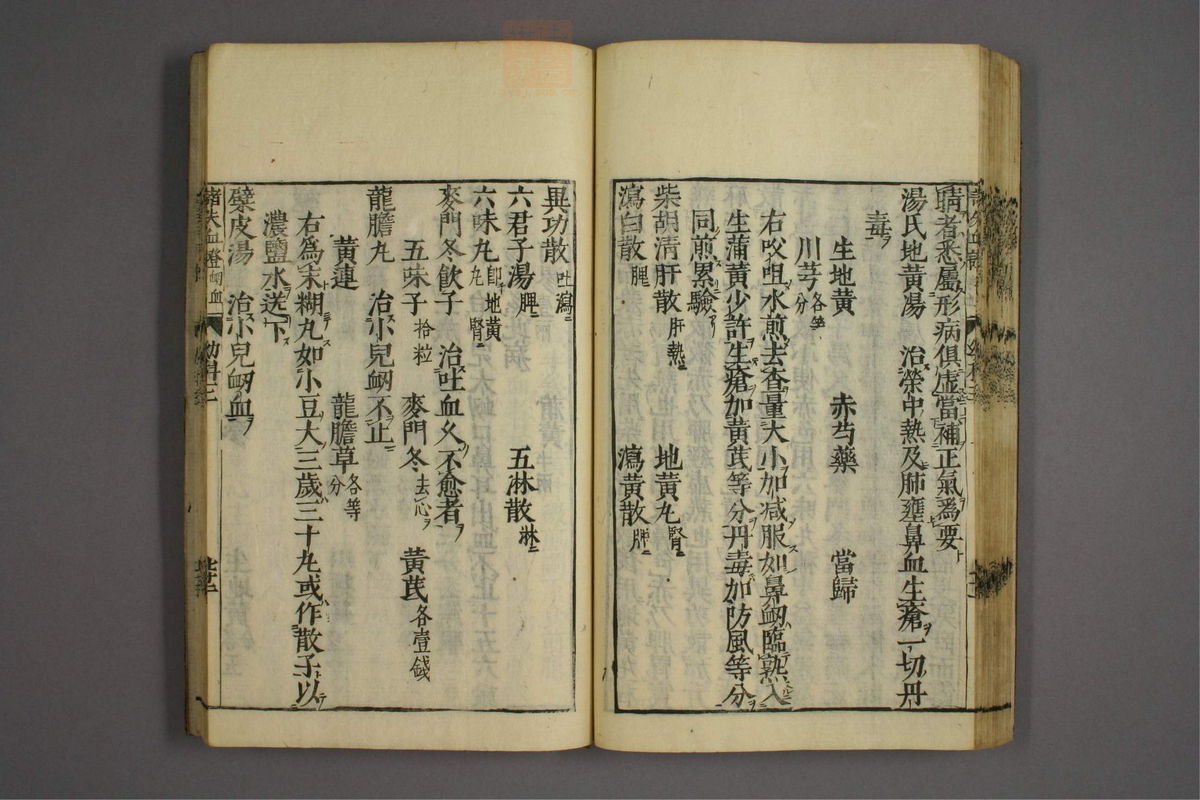 睛者悉屬形病俱虛當補正氣爲要
湯氏地黃湯　治榮中熱及肺壅鼻血生瘡一切丹
毒
生地黃　赤芍藥　當歸
川芎各等分
右㕮咀水煎去査量大小加減服如鼻衄臨熟入
生蒲黃少許生瘡加黃芪等分丹毒加防風等分
同煎累驗
柴胡清肝散肝熱　地黃丸腎
瀉白散脾　瀉黃散脾
異功散吐瀉
六君子湯脾　五淋散淋
六味丸卽地黃丸腎
麥門冬飮子　治吐血久不愈者
五味子拾粒　麥門冬去心　黃芪各壹錢
龍膽丸　治小兒衄不止
黃連　龍膽草各等分
右爲末糊丸如小豆大三歲三十丸或作散子以
濃鹽水送下
檗皮湯　治小兒衄血
諸失血證衄血　幼科三